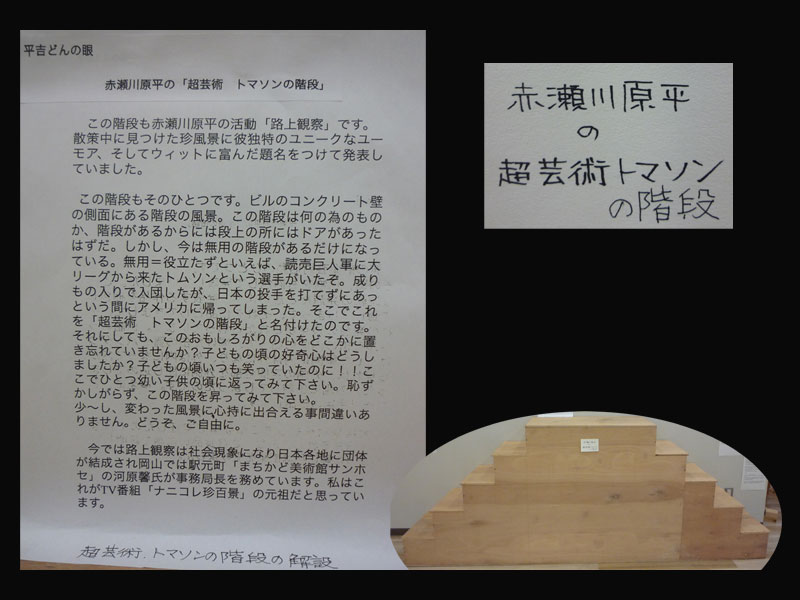 平吉どんの眼
赤瀬川原平の「超芸術　トマソンの階段」
この階段も赤瀬川原平の活動「路上観察」です。
散策中に見つけた珍風景に彼独特のユニークなユー
モア、そしてウィットに富んだ題名をつけて発表し
ていました。
この階段もそのひとつです。ビルのコンクリート壁
の側面にある階段の風景。この階段は何の為のもの
か、階段があるからには段上の所にはドアがあった
はずだ。しかし、今は無用の階段があるだけになっ
ている。無用＝役立たずといえば、読売巨人軍に大
リーグから来たトムソンという選手がいたぞ。成り
もの入りで入団したが、日本の投手を打てずにあっ
という間にアメリカに帰ってしまった。そこでこれ
を「超芸術　トマソンの階段」と名付けたのです。
それにしても、このおもしろがりの心をどこかに置
き忘れていませんか？子どもの頃の好奇心はどうし
ましたか？子どもの頃いつも笑っていたのに！！こ
こでひとつ幼い子供の頃に返ってみて下さい。恥ず
かしがらず、この階段を昇ってみて下さい。
少〜し、変わった風景に心持に出合える事間違いあ
りません。どうぞ、ご自由に。
今では路上観察は社会現象になり日本各地に団体
が結成され岡山では駅元町「まちかど美術館サンホ
セ」の河原馨氏が事務局長を務めています。私はこ
れがTV番組「ナニコレ珍百景」の元祖だと思ってい
ます。
超芸術.トマソンの階段の解説
赤瀬川原平
の
超芸術トマソン
の階段